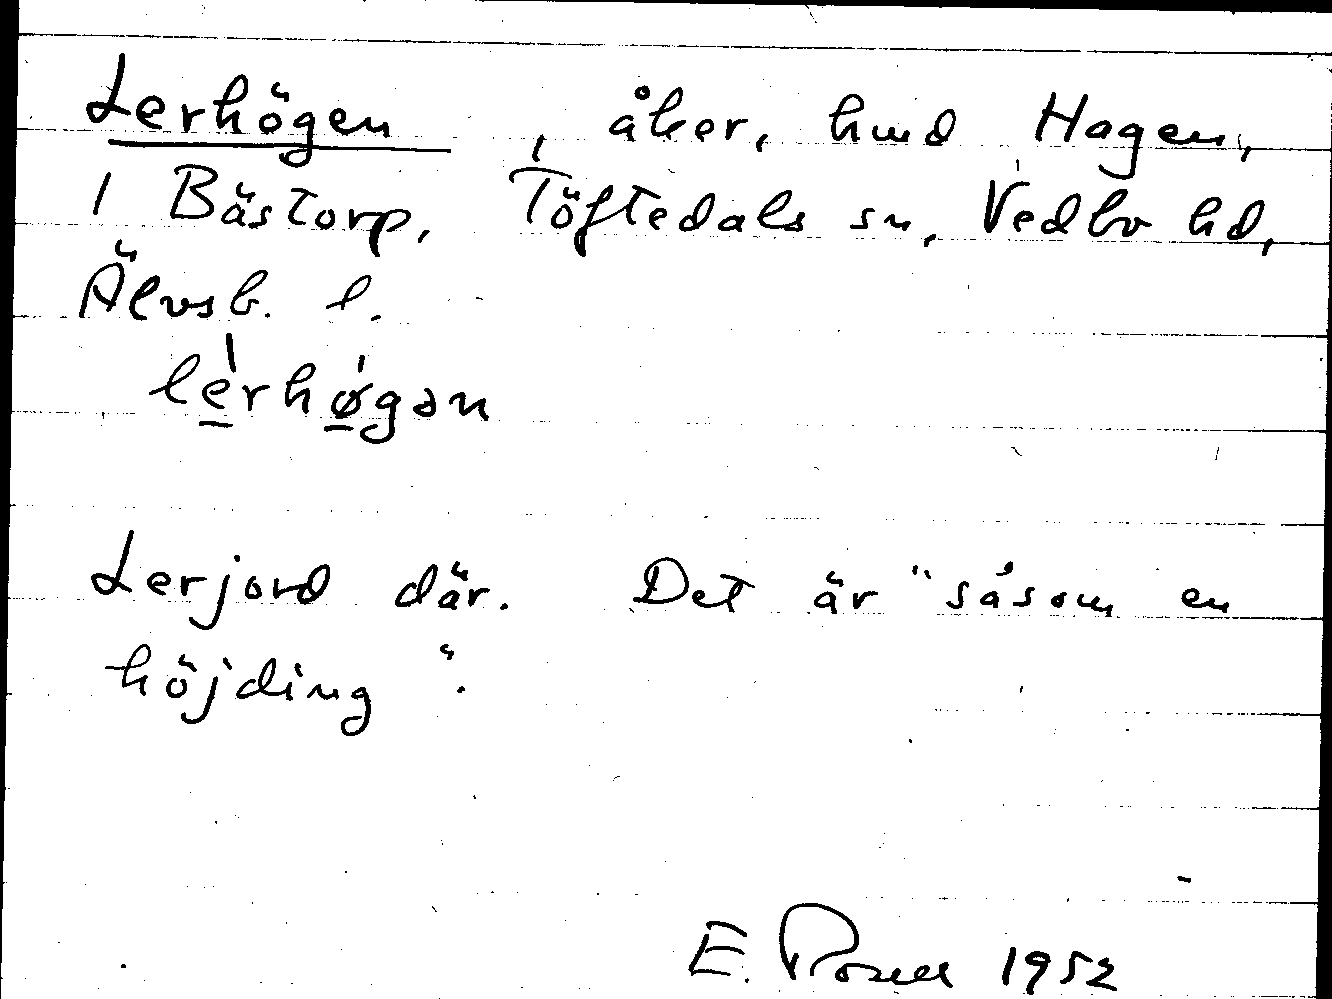 Lerhögen, åker, hmd Hagen,
i Bästorp, Töftedals sn, Vedbo hd,
Älvsb. l.
lèrhø̀gən
Lerjord där. Det är "såsom en
höjding".
E. Rosell 1952